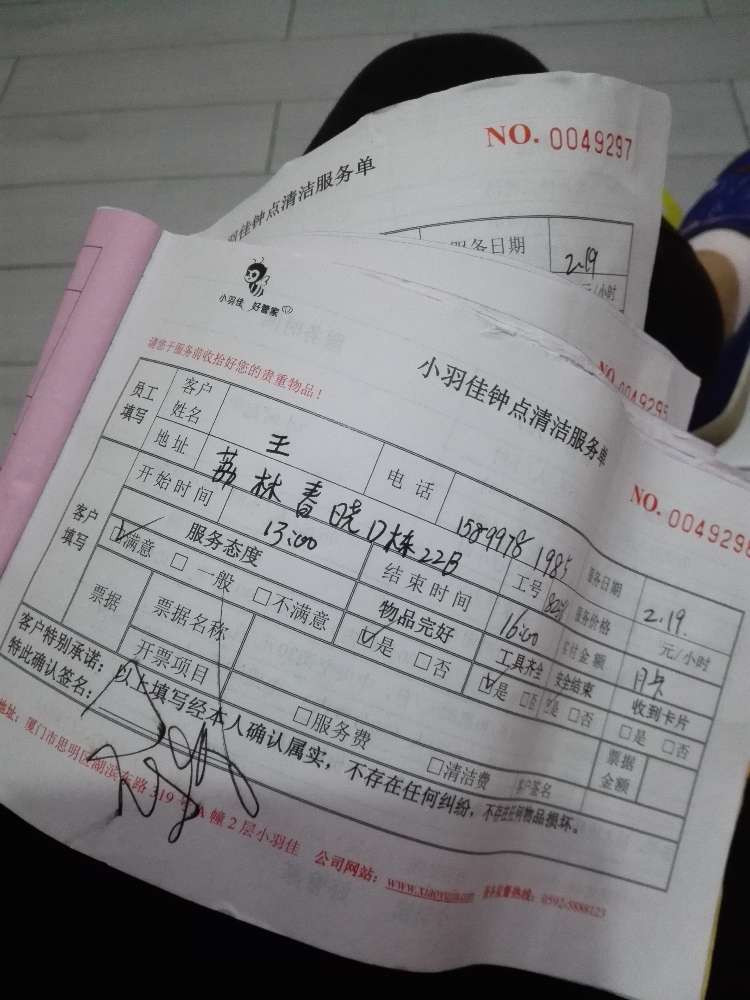 NO. 0049297
小羽佳钟点清洁服务单
服务日期 2.19
元/小时
NO. 0049295
小羽佳 好管家
请您于服务前收拾好您的贵重物品！
小羽佳钟点清洁服务单
员工填写 客户姓名 王 电话 15899781985 服务日期 2.19.
地址 荔林春晓D栋22B 工号 服务价格 元/小时
开始时间 13:00 结束时间 16:00 实付金额 月卡
客户填写 服务态度 物品完好 工具齐全 安全结束 收到卡片
☑满意 □一般 □不满意 ☑是 □否 ☑是 □否 □是 □否
票据 票据名称 票据金额
开票项目 □服务费 □清洁费 客户签名
客户特别承诺：以上填写经本人确认属实，不存在任何纠纷，不存在任何物品损坏。
特此确认签名：
地址：厦门市思明区湖滨东路319号A幢2层小羽佳 公司网站：www.xiaoyujia.com